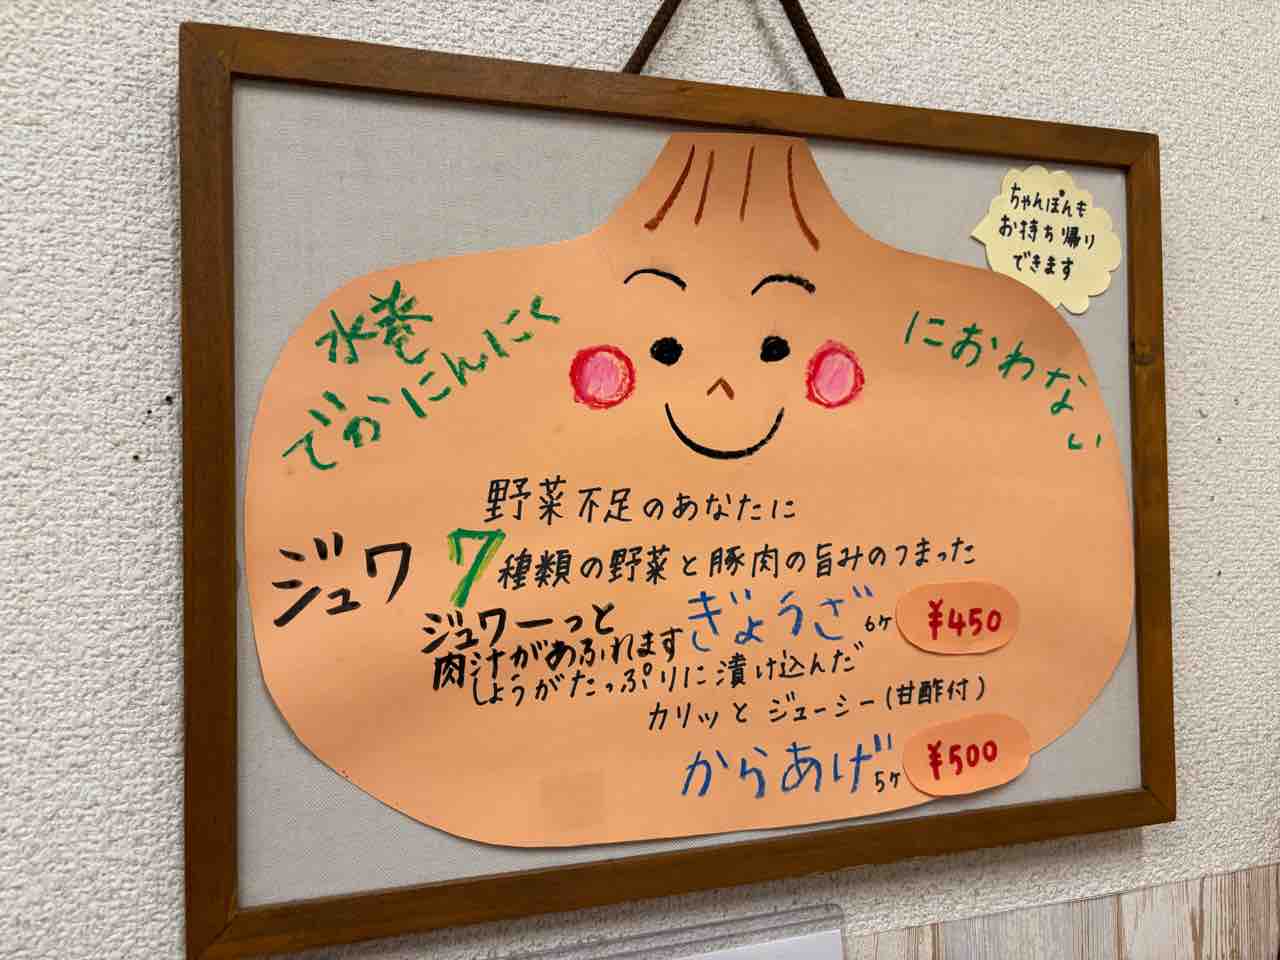 ちゃんぽんも
お持ち帰り
できます
水巻
でかにんにく
におわない
野菜不足のあなたに
ジュワ 7種類の野菜と豚肉の旨みのつまった
ジュワーっと
肉汁があふれます
ぎょうざ 6ケ ¥450
しょうがたっぷりに漬け込んだ
カリッと ジューシー(甘酢付)
からあげ 5ケ ¥500